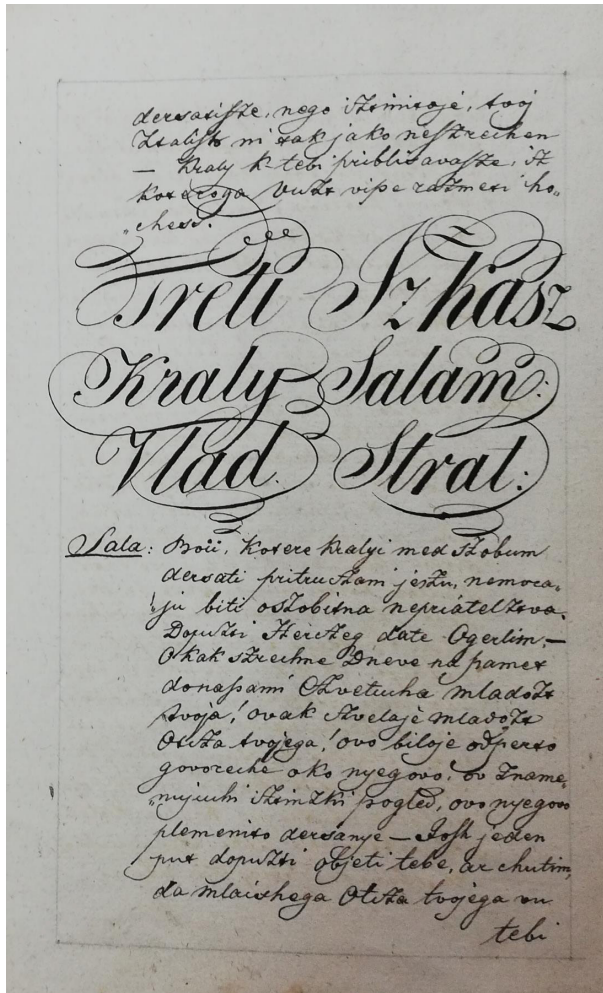 dersatisse, nego iztinitoje, tvoj
ztalish ni tak jako neszrechen
— Kraly k tebi priblisavasze, iz
koteroga vuzt vise razmeti ho„
„chess.
Treti Szkasz
Kraly Salam:
Vlad. Strat:
Sala: Boii, kotere kralyi med szobum
dersati pritruczani jeszu, nemora„
„ju biti oszobitna nepriatelztva.
Dopuzti Herczeg date Ogerlim, —
O kak szrechne Dneve na pamet
donassami Czvetucha mladozt
tvoja! ovak szvetlaje mladozt
Otcza tvojega! ovo biloje odperto
govoreche oko nyegovo! ov Zname„
„nujuchi iztinzki pogled, ovo nyegovo
plemenito dersanye — Josh jeden
put dopuzti objeti tebe, ar chutim,
da mlaishega Otcza tvojega vu
tebi